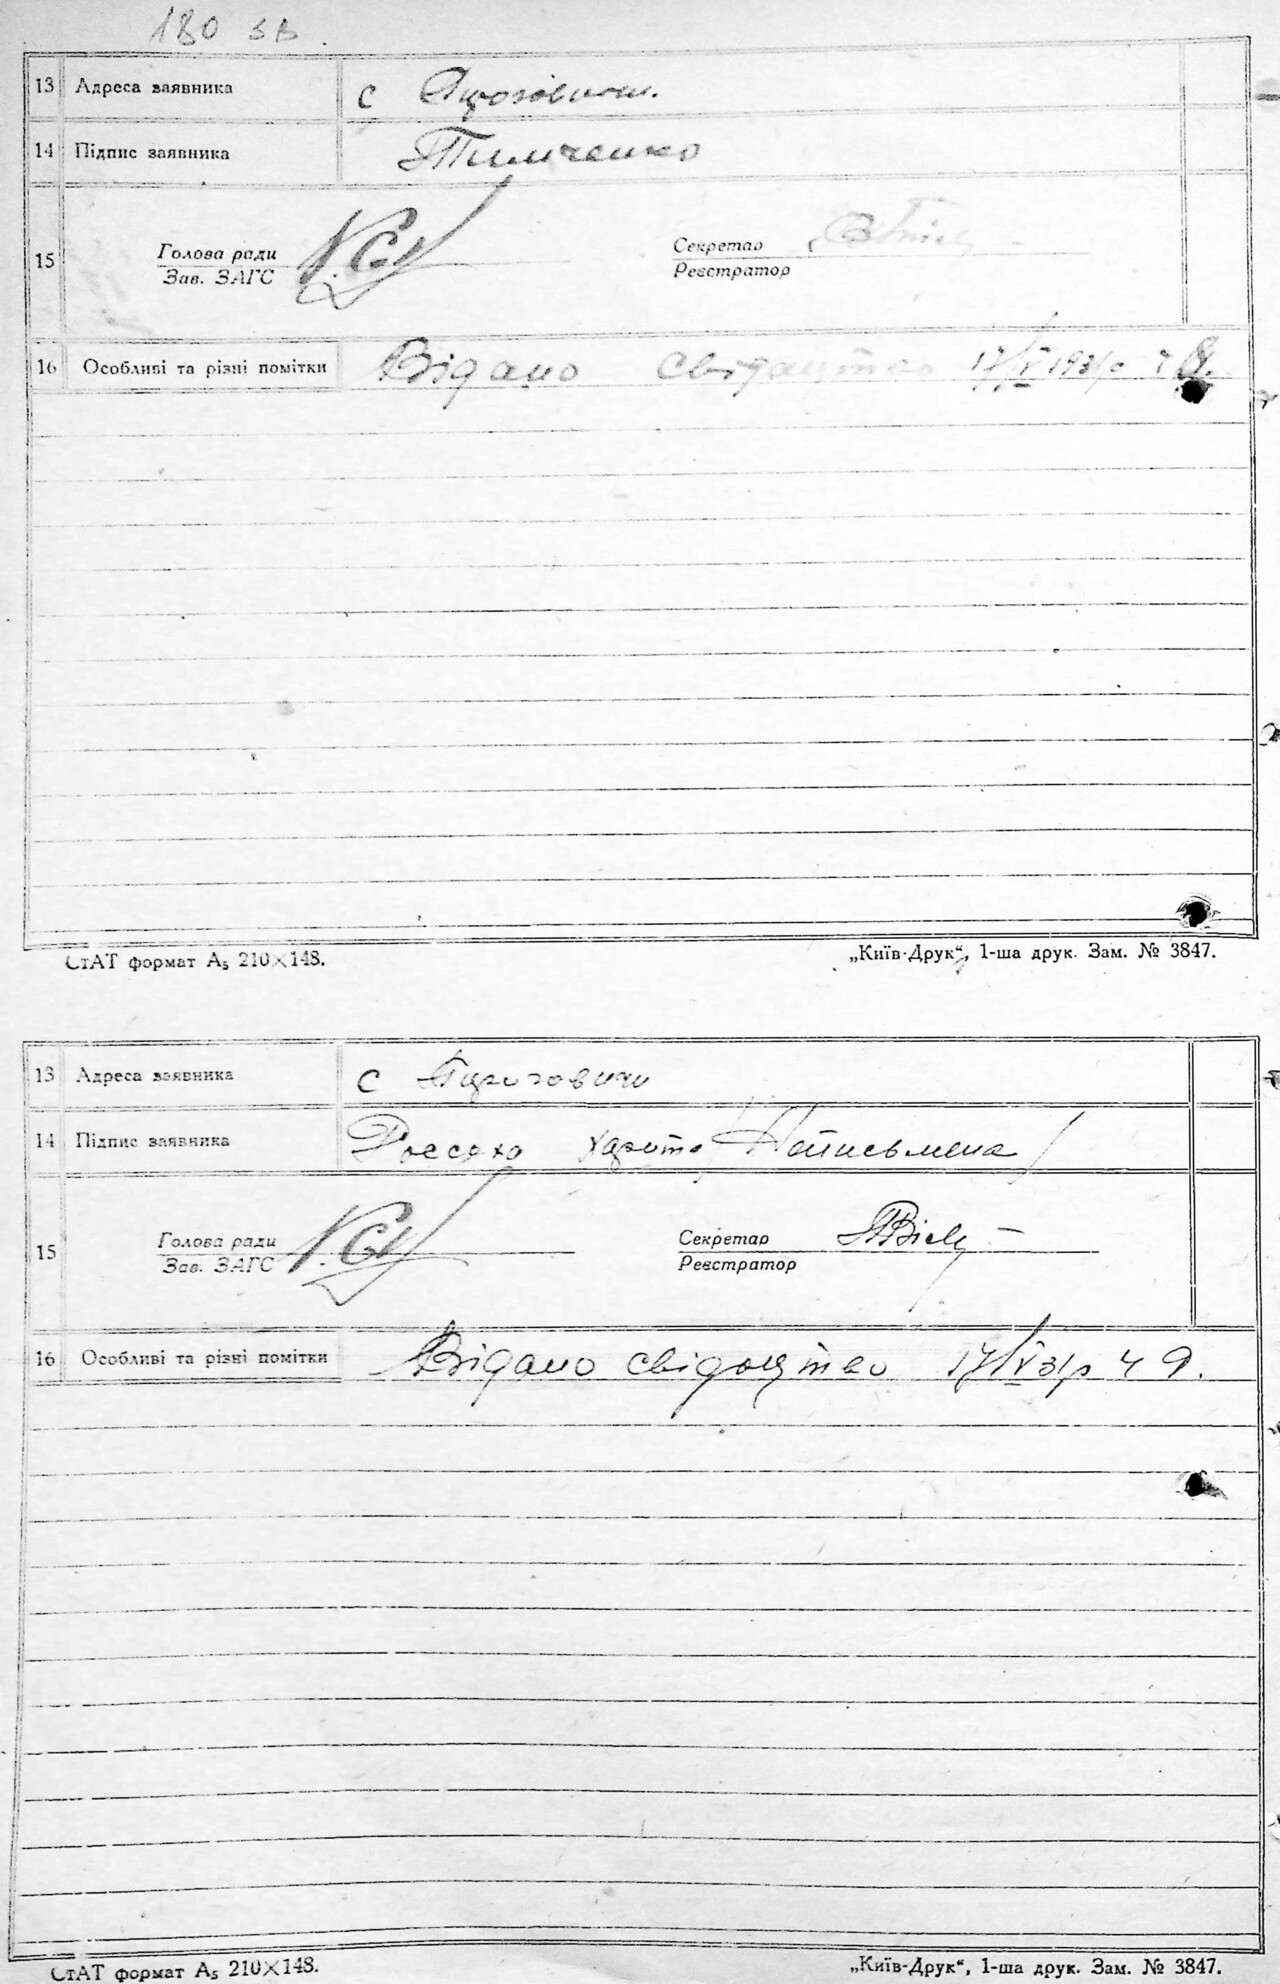 180 зв.
13 Адреса заявника с Пироговичи.
14 Підпис заявника Тимченко
15 Голова ради Секретар
Зав. ЗАГС Реєстратор
16 Особливі та різні помітки Відано свідоцтво 17/V 1931р ч 8.
СтАТ формат А5 210×148. „Київ-Друк“, 1-ша друк. Зам. № 3847.
13 Адреса заявника с Пироговичи
14 Підпис заявника Россоха Харита Неписьмена
15 Голова ради Секретар
Зав. ЗАГС Реєстратор
16 Особливі та різні помітки Відано свідоцтво 17/V 31р ч 9.
СтАТ формат А5 210×148. „Київ-Друк“, 1-ша друк. Зам. № 3847.